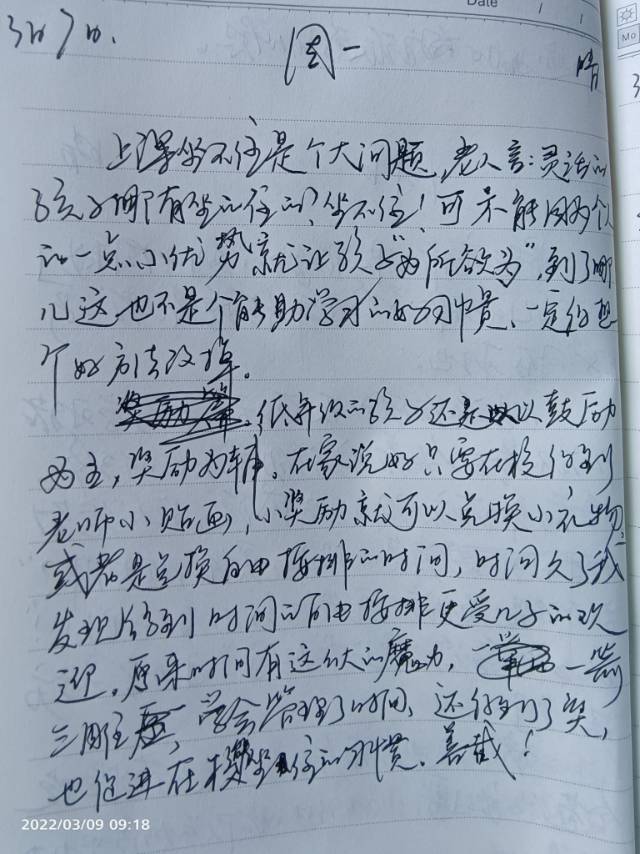 Date / /
Mo
3月7日. 周一 晴
上课坐不住是个大问题,老人言:灵活的
孩子哪有坐的住的?坐不住!可不能因为个人
的一点小优势就让孩子"为所欲为",到了哪
儿这也不是个能助学习的好习惯、一定得想
个好方法改掉。
低年级的孩子还是以鼓励
为主,奖励为辅。在家说好只要在校得到
老师小贴画,小奖励就可以兑换小礼物,
或者是兑换自由安排的时间,时间久了我
发现得到时间的自由安排更受儿子的欢
迎。原来时间有这么大的魔力,一箭
三雕,学会管理了时间,还得到了奖,
也促进在校坐住的习惯。善哉!
2022/03/09 09:18